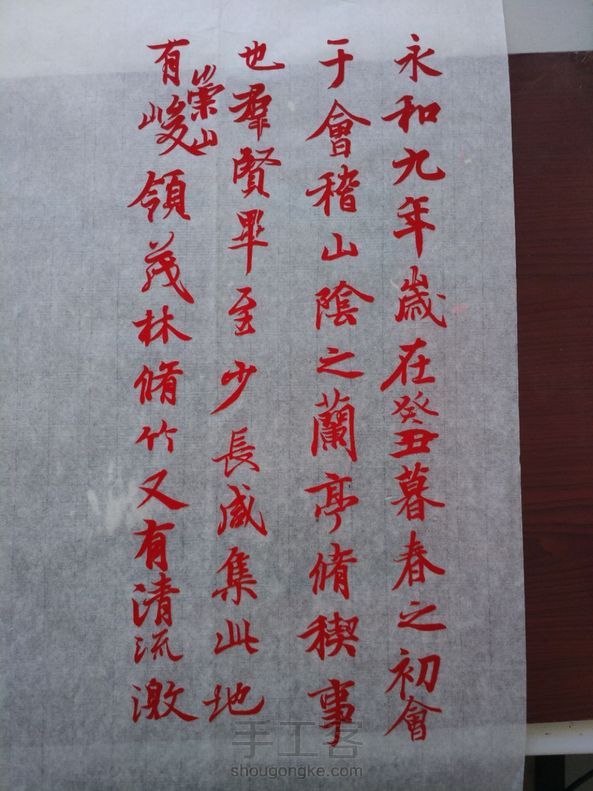 永和九年歲在癸丑暮春之初會
于會稽山陰之蘭亭脩稧事
也羣賢畢至少長咸集此地
有崇山峻領茂林脩竹又有清流激
手工客
shougongke.com